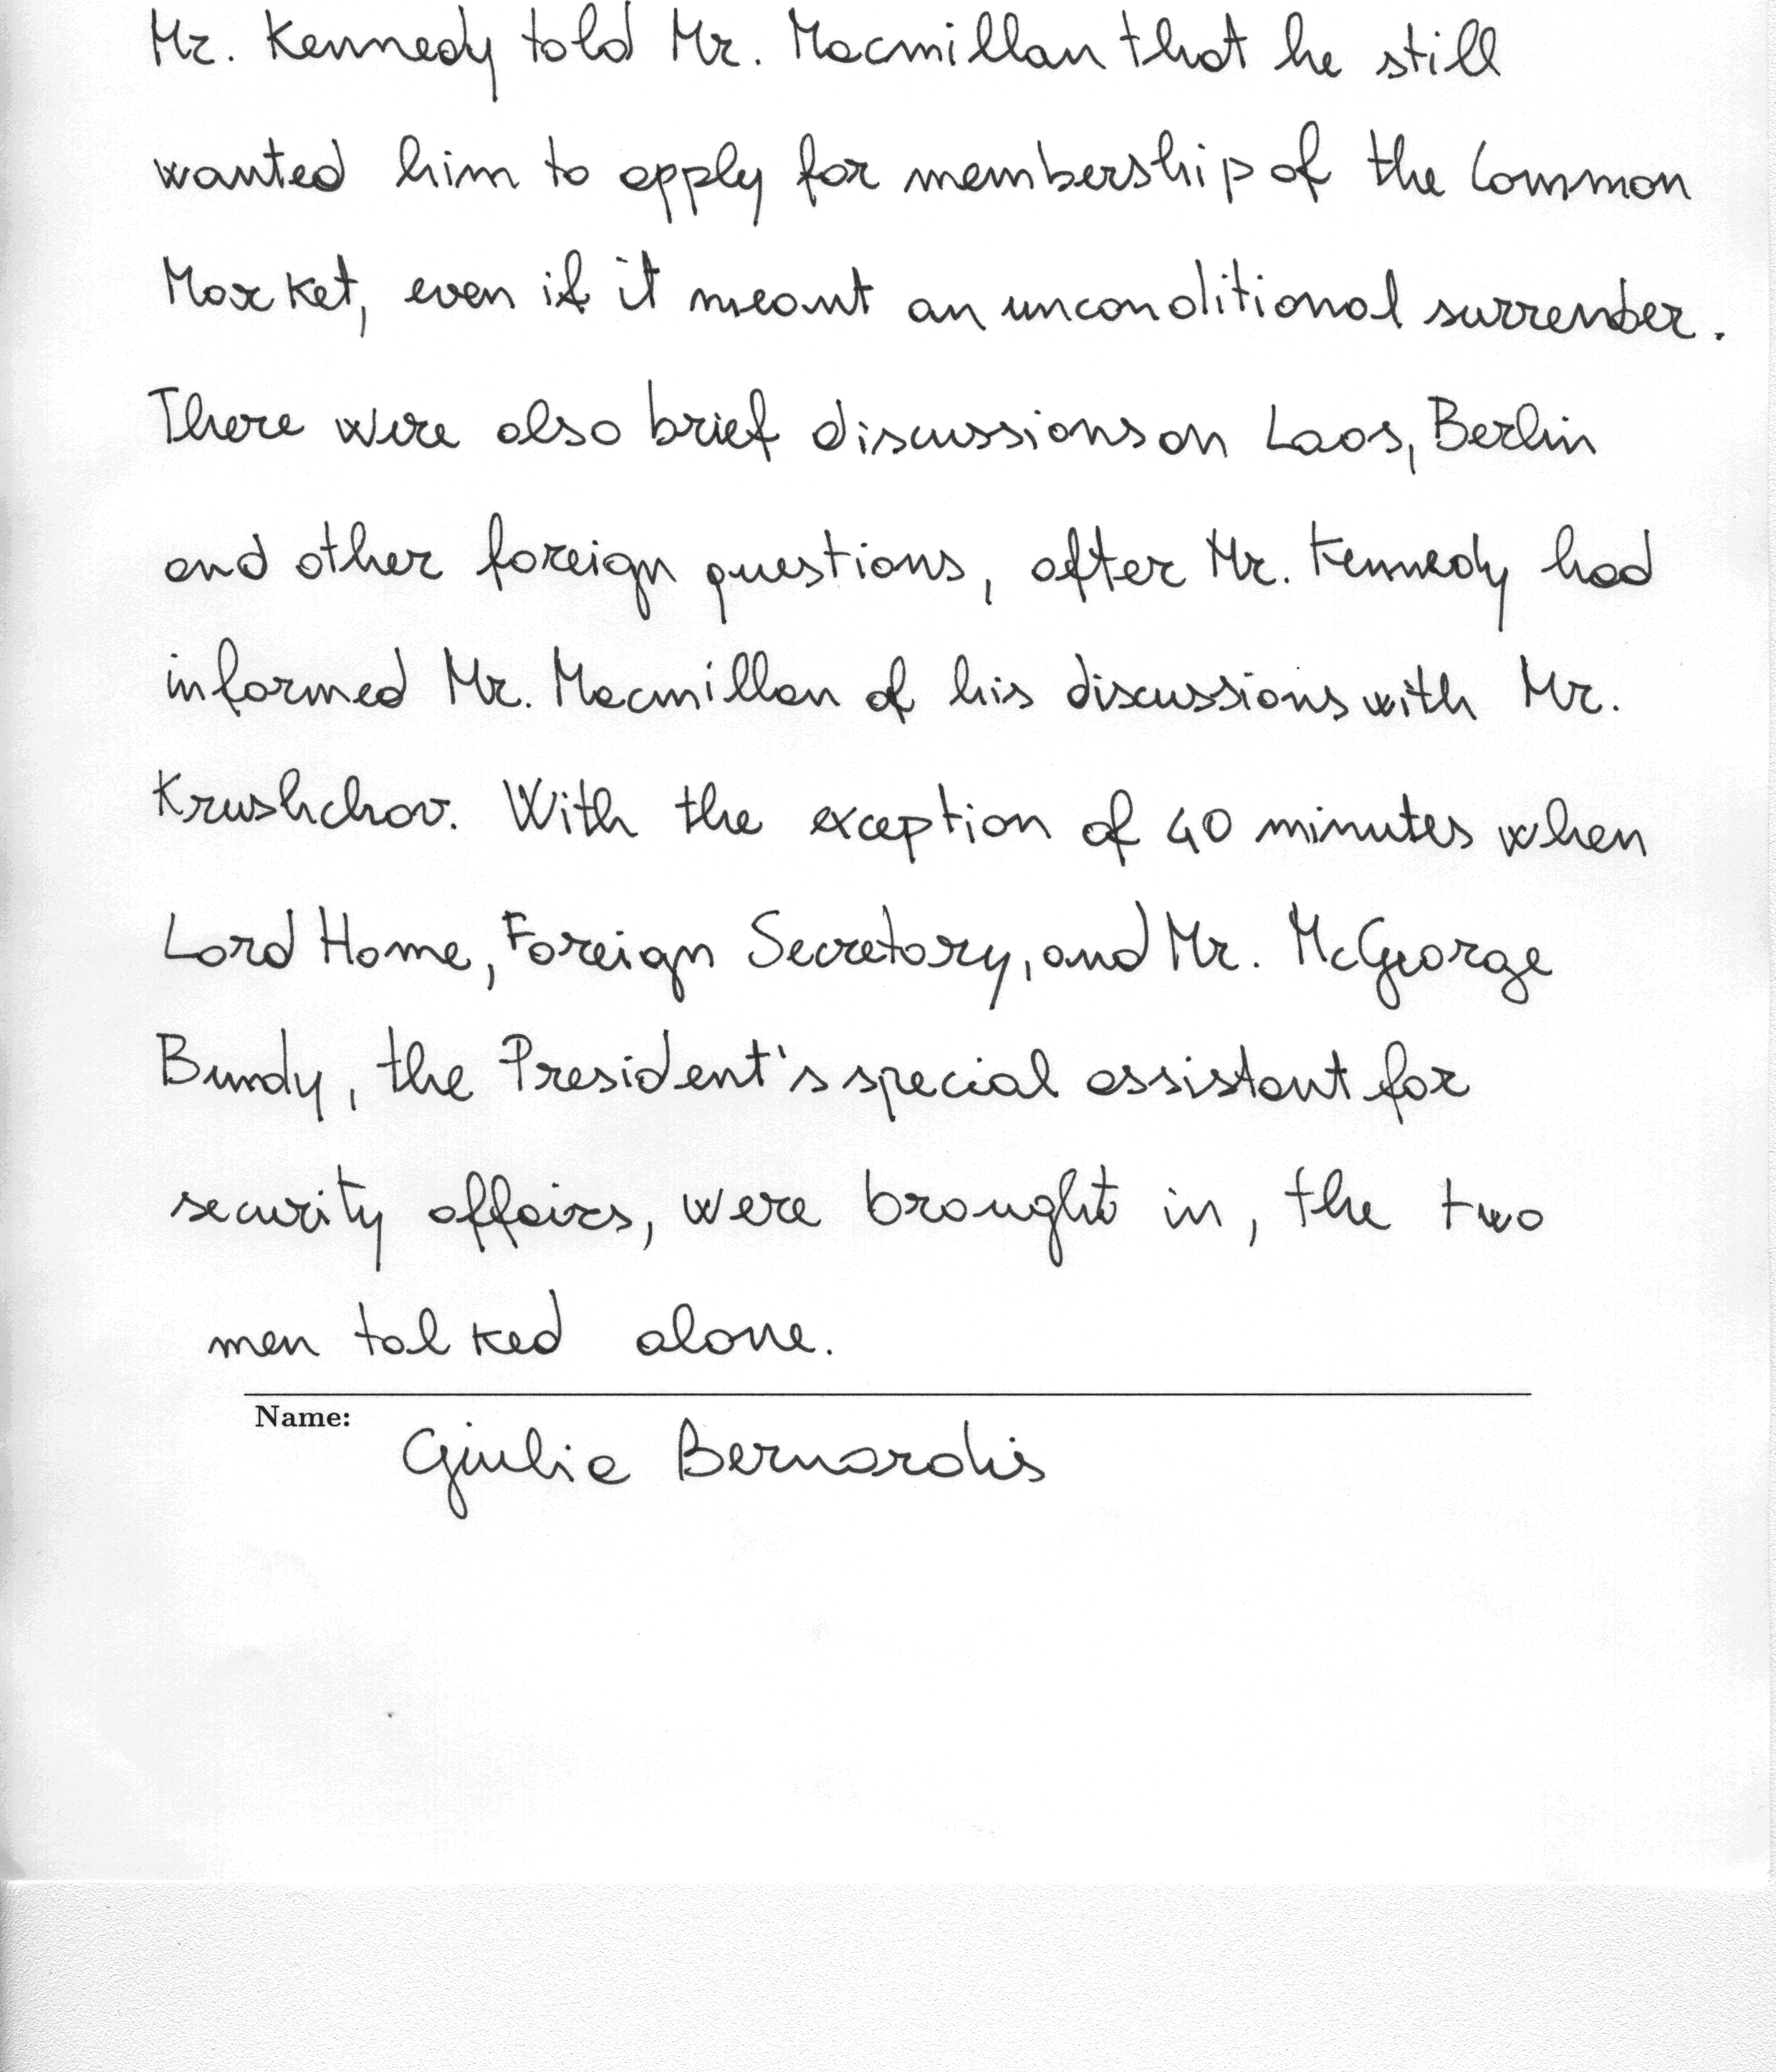 Mr. Kennedy told Mr. Macmillan that he still
wanted him to apply for membership of the Common
Market, even if it meant an unconditional surrender.
There were also brief discussions on Laos, Berlin
and other foreign questions, after Mr. Kennedy had
informed Mr. Macmillan of his discussions with Mr.
Krushchov. With the exception of 40 minutes when
Lord Home, Foreign Secretary, and Mr. McGeorge
Bundy, the President's special assistant for
security affairs, were brought in, the two
men talked alone.
Name: Giulia Bernardis